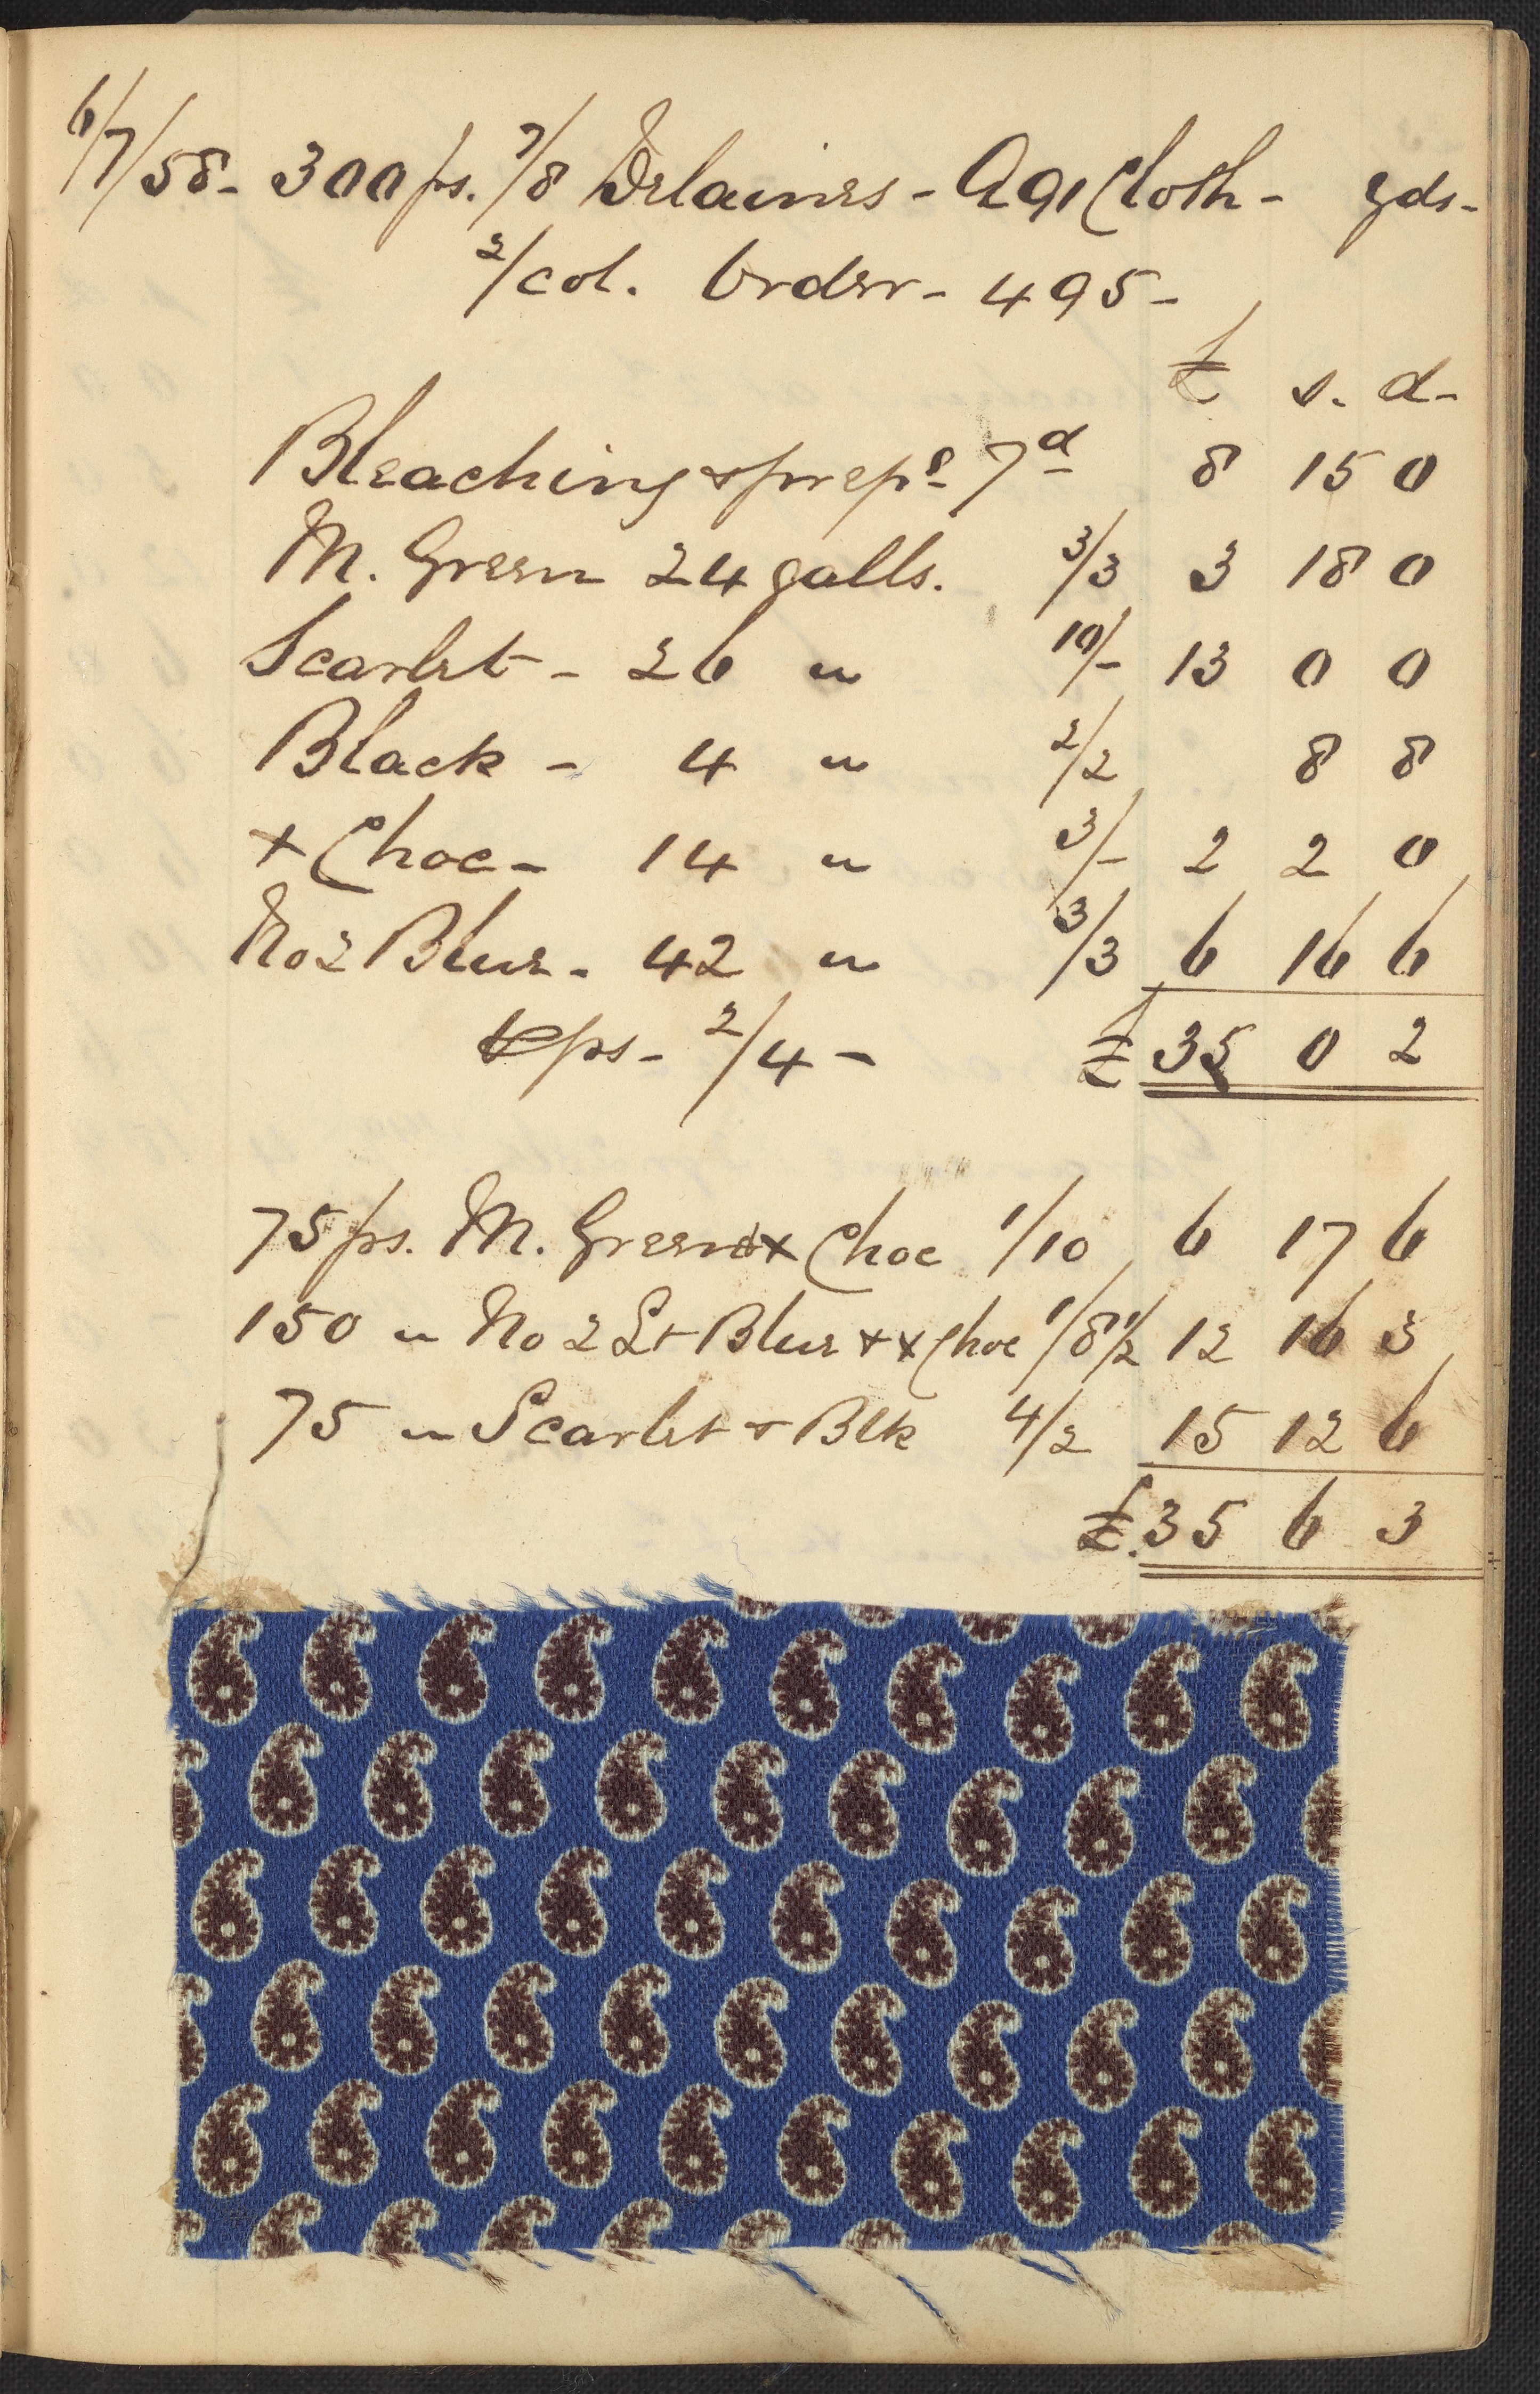 6/7/58 - 300 ps. 7/8 Delaines - A91 Cloth - yds -
2/col. Order - 495 -
£ s. d -
Bleaching & prepg 7d 8 15 0
M. Green 24 galls. 3/3 3 18 0
Scarlet - 26 " 10/- 13 0 0
Black - 4 " 2/2 8 8
+ Choc - 14 " 3/- 2 2 0
No 2 Blue - 42 " 3/3 6 16 6
ps - 2/4 - £ 35 0 2
75 ps. M. Green & x Choc 1/10 6 17 6
150 " No 2 Lt Blue + x Choc 1/8 1/2 12 16 3
75 " Scarlet & Blk 4/2 15 12 6
£. 35 6 3